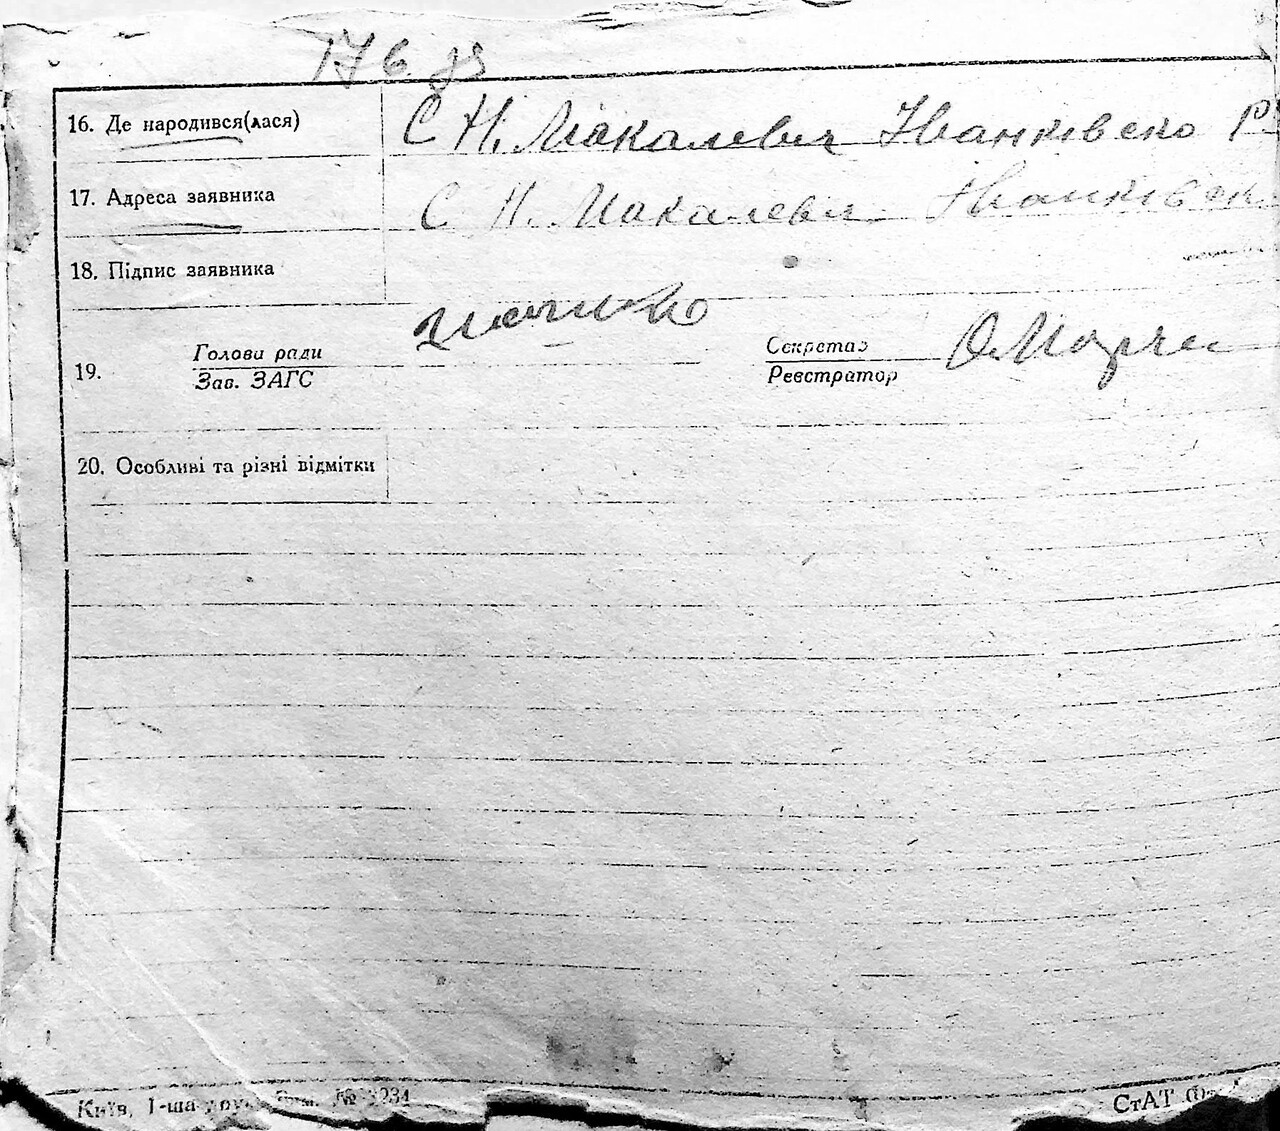 176 зв
16. Де народився(лася) С Н. Макалевич Іванківсько Р
17. Адреса заявника С Н. Макалевич Іванківськ
18. Підпис заявника
Голова ради Секретар
19.
Зав. ЗАГС Реєстратор
20. Особливі та різні відмітки
Київ, 1-ша друк. Зам. № 1234 СтАТ Ф